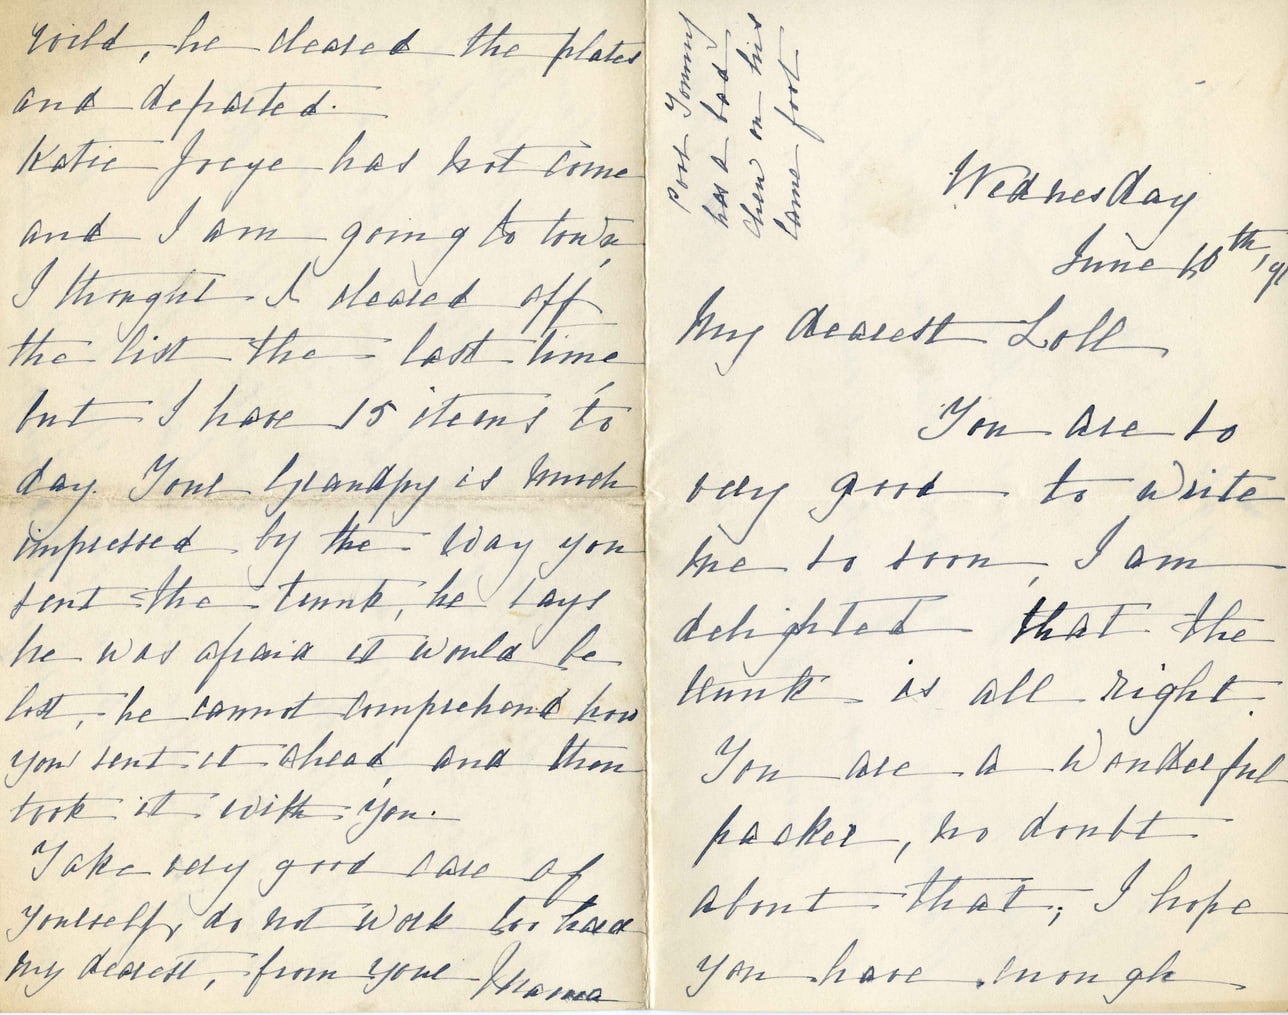 Wednesday
June 10th,
My dearest Loll
You are so
very good to write
me so soon, I am
delighted that the
trunk is all right.
You are a wonderful
packer, no doubt
about that; I hope
you have enough
wild, he cleared the plates
and departed.
Katie has not come
and I am going to town,
I thought I cleared off
the list the last time
but I have 15 items to
day. Your Grandpy is much
impressed by the way you
sent the trunk, he says
he was afraid it would be
lost, he cannot comprehend how
you sent it ahead, and then
took it with you.
Take very good care of
yourself, do not work too hard
my dearest, from your Mama
poor Tommy
has a bad
chew on his
lame foot